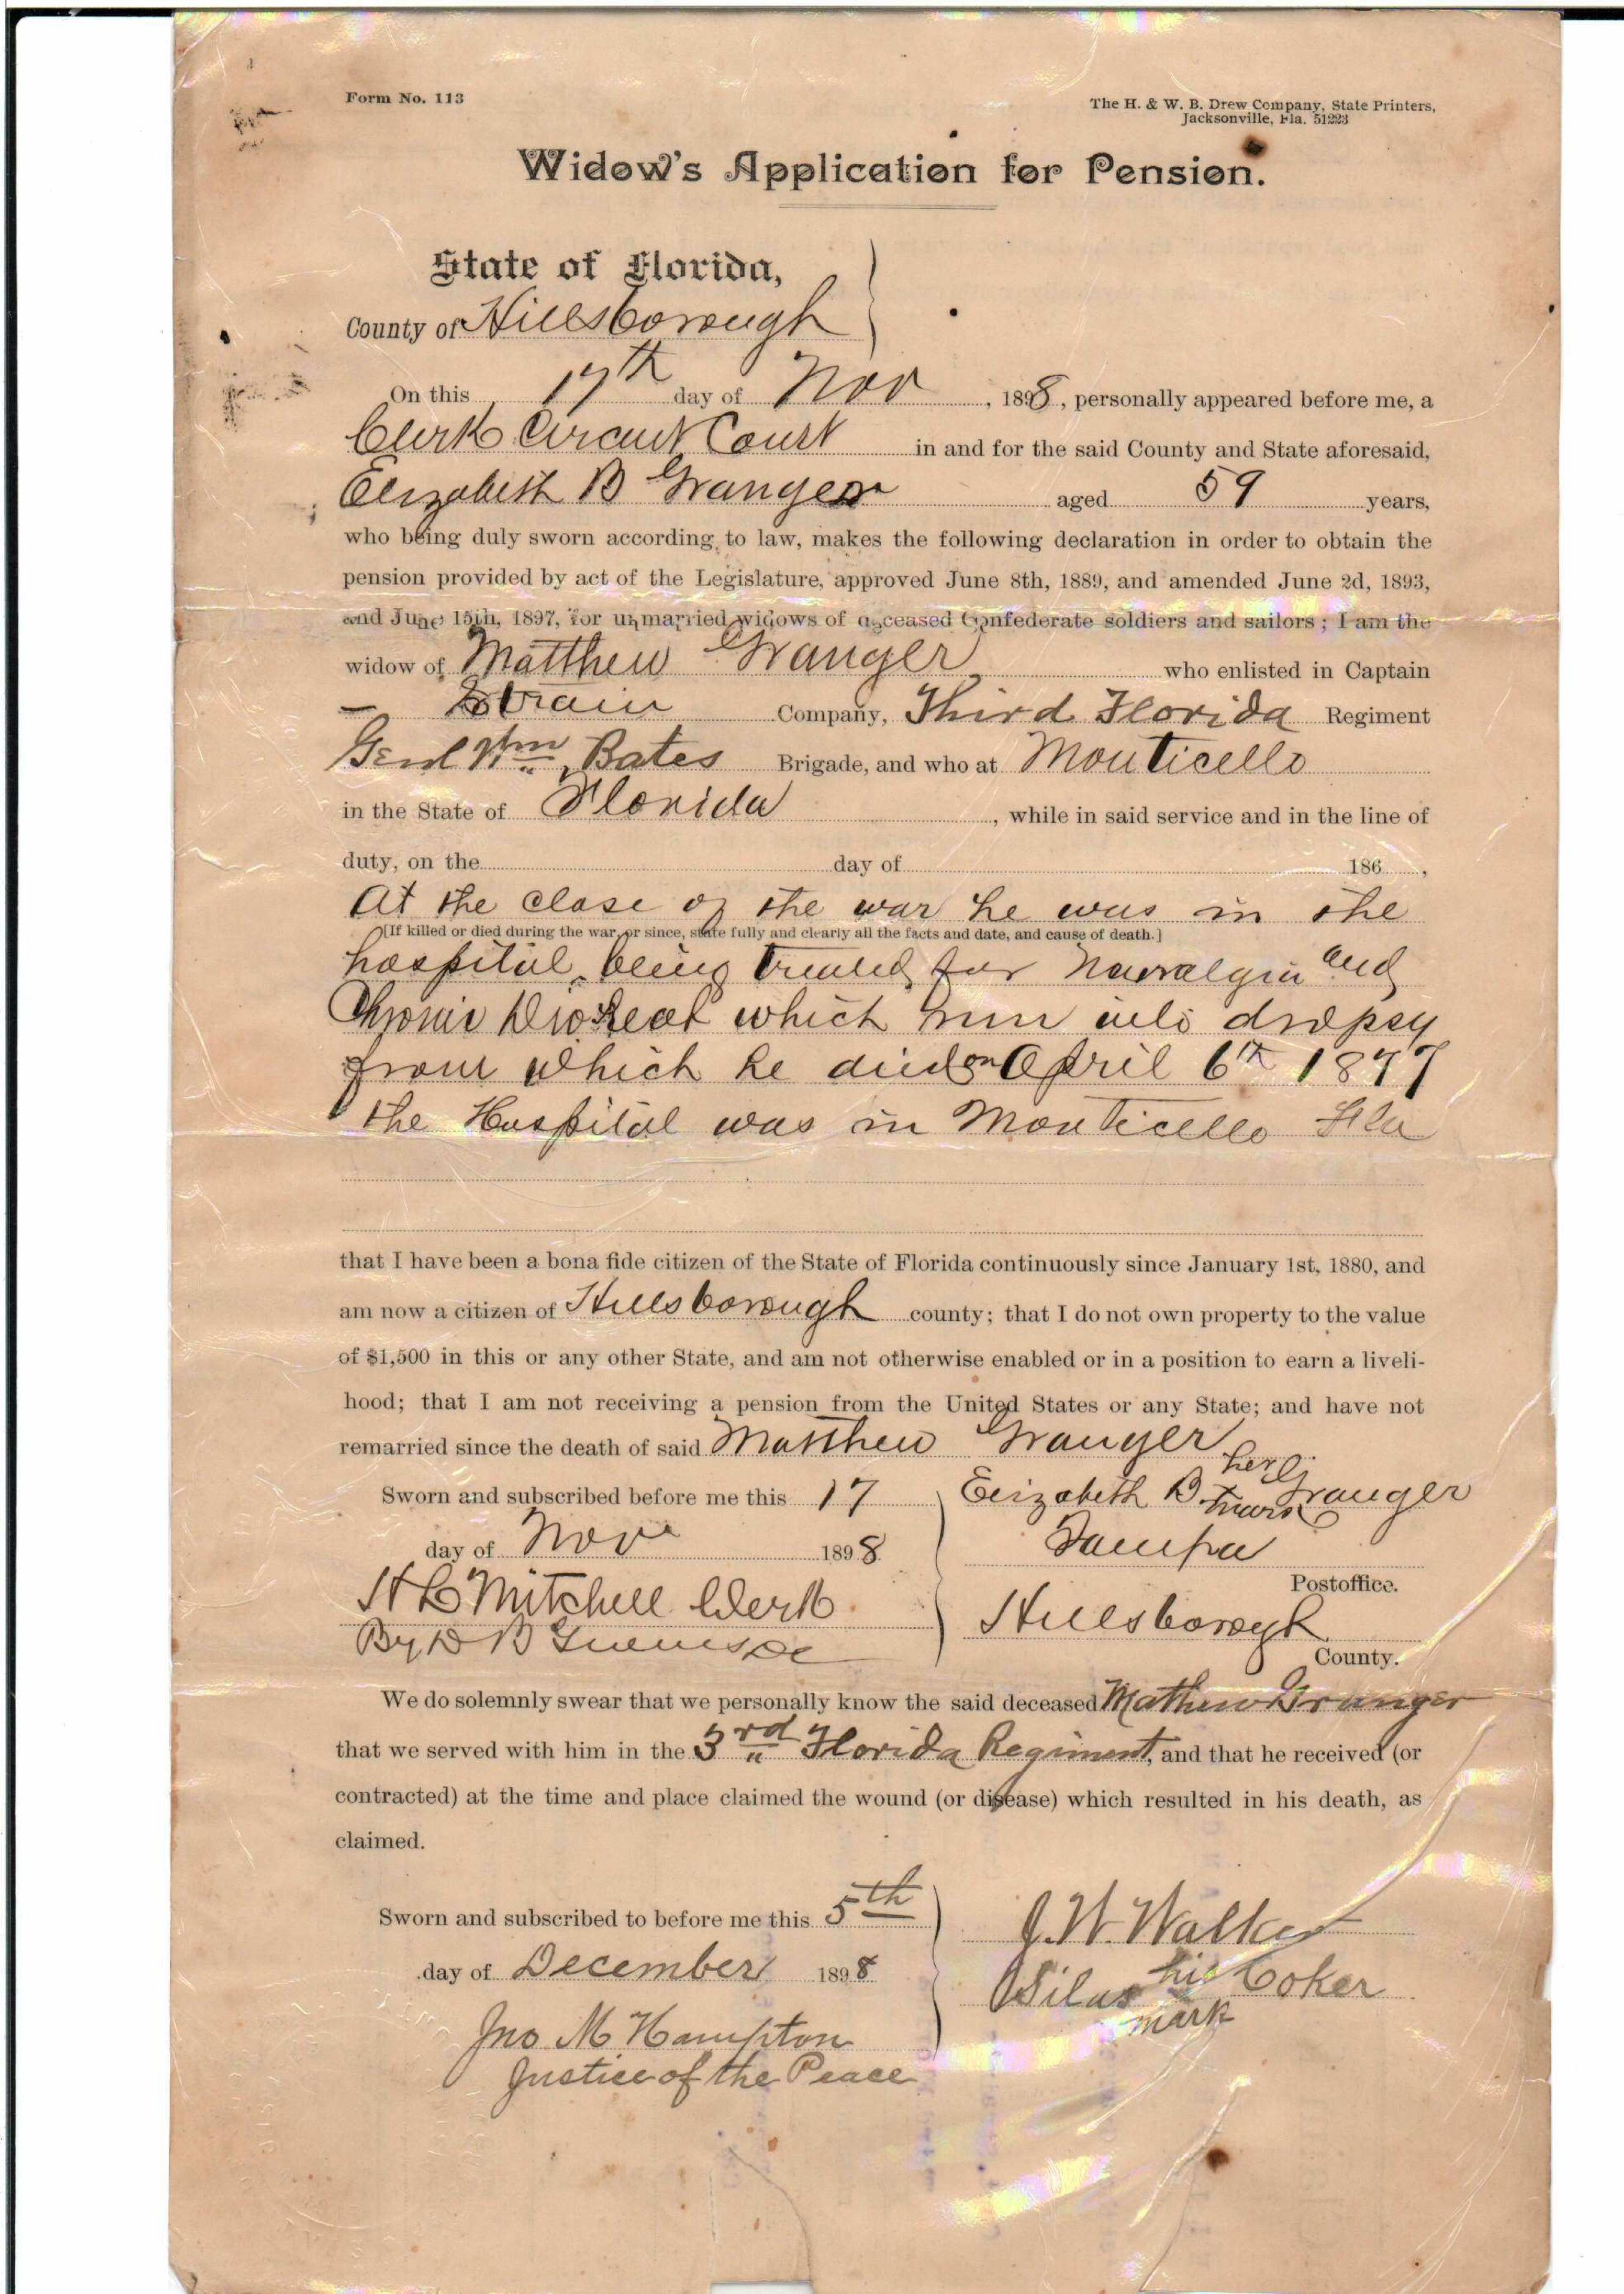 Form No. 113
The H. & W. B. Drew Company, State Printers,
Jacksonville, Fla. 51223
Widow's Application for Pension.
State of Florida,
County of Hillsborough
On this 17th day of Nov, 1898, personally appeared before me, a
Clerk Circuit Court in and for the said County and State aforesaid,
Elizabeth B Granger aged 59 years,
who being duly sworn according to law, makes the following declaration in order to obtain the
pension provided by act of the Legislature, approved June 8th, 1889, and amended June 2d, 1893,
and June 15th, 1897, for unmarried widows of deceased Confederate soldiers and sailors; I am the
widow of Matthew Granger who enlisted in Captain
— Strain Company, Third Florida Regiment
Genl Wm Bates Brigade, and who at Monticello
in the State of Florida, while in said service and in the line of
duty, on the day of 186 ,
At the close of the war he was in the
[If killed or died during the war, or since, state fully and clearly all the facts and date, and cause of death.]
hospital being treated for Nauralgia and
Chronic which run into dropsy
from which he died on April 6th 1877
the Hospital was in Monticello Fla
that I have been a bona fide citizen of the State of Florida continuously since January 1st, 1880, and
am now a citizen of Hillsborough county; that I do not own property to the value
of $1,500 in this or any other State, and am not otherwise enabled or in a position to earn a liveli-
hood; that I am not receiving a pension from the United States or any State; and have not
remarried since the death of said Matthew Granger
Sworn and subscribed before me this 17
day of Nov 1898
H L Mitchell Clerk
By D B
Elizabeth B her mark Granger
Tampa
Postoffice.
Hillsborough
County.
We do solemnly swear that we personally know the said deceased Mathew Granger
that we served with him in the 3rd Florida Regiment, and that he received (or
contracted) at the time and place claimed the wound (or disease) which resulted in his death, as
claimed.
Sworn and subscribed to before me this 5th
day of December 1898
Jno M Hampton
Justice of the Peace
J. W. Walker
Silas his mark Coker